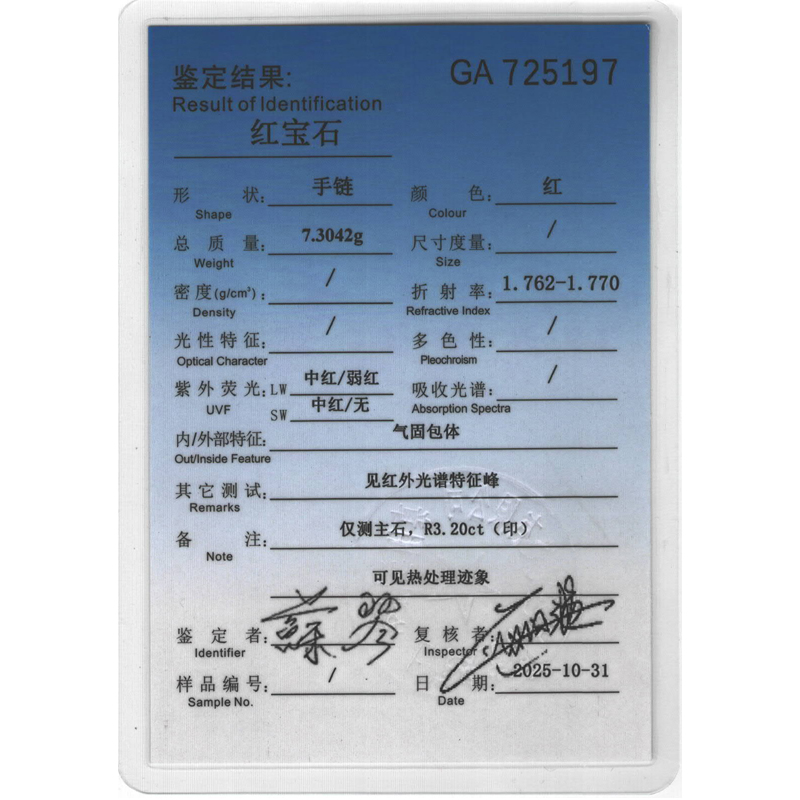 鉴定结果:
GA 725197
Result of Identification
红宝石
形 状: 手链
Shape
颜 色: 红
Colour
总 质 量: 7.3042g
Weight
尺寸度量: /
Size
密度(g/cm³): /
Density
折 射 率: 1.762-1.770
Refractive Index
光性特征: /
Optical Character
多 色 性: /
Pleochroism
紫外荧光: LW 中红/弱红
UVF
SW 中红/无
吸收光谱: /
Absorption Spectra
内/外部特征: 气固包体
Out/Inside Feature
其它测试: 见红外光谱特征峰
Remarks
备 注: 仅测主石, R3.20ct (印)
Note
可见热处理迹象
鉴 定 者:
Identifier
复 核 者:
Inspector
样品编号: /
Sample No.
日 期: 2025-10-31
Date